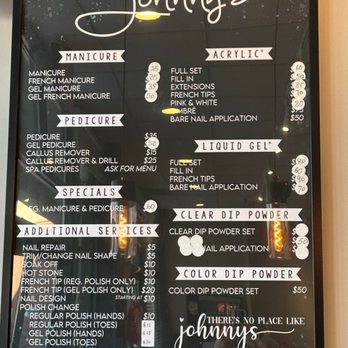 Johnnys
MANICURE
MANICURE
FRENCH MANICURE
GEL MANICURE
GEL FRENCH MANICURE
PEDICURE
PEDICURE $35
GEL PEDICURE
CALLUS REMOVER $15
CALLUS REMOVER & DRILL $25
SPA PEDICURES ASK FOR MENU
SPECIALS
REG. MANICURE & PEDICURE 60
ADDITIONAL SERVICES
NAIL REPAIR $5
TRIM/CHANGE NAIL SHAPE $5
SOAK OFF $10
HOT STONE $10
FRENCH TIP (REG. POLISH ONLY) $10
FRENCH TIP (GEL POLISH ONLY) $20
NAIL DESIGN STARTING AT $10
POLISH CHANGE
REGULAR POLISH (HANDS) $10
REGULAR POLISH (TOES)
GEL POLISH (HANDS)
GEL POLISH (TOES)
ACRYLIC
FULL SET 60
FILL IN
EXTENSIONS
FRENCH TIPS
PINK & WHITE
OMBRÉ
BARE NAIL APPLICATION $50
LIQUID GEL
FULL SET
FILL IN
FRENCH TIPS
BARE NAIL APPLICATION
CLEAR DIP POWDER
CLEAR DIP POWDER SET
NAIL APPLICATION
COLOR DIP POWDER
COLOR DIP POWDER SET $50
THERE'S NO PLACE LIKE
johnnys